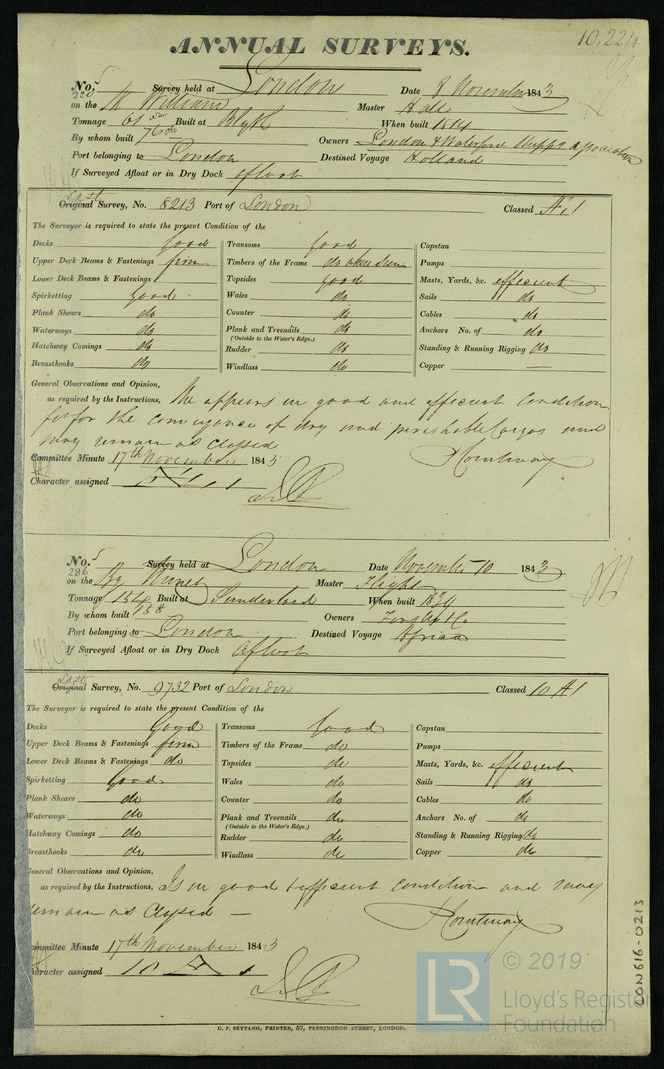 10,224
ANNUAL SURVEYS.
No. 5 Survey held at London Date 8 November 1843
220
on the William Master Hall
Tonnage 61 Built at Blyth When built 1814
By whom built Owners London & Waterford Shipps Association
Port belonging to London Destined Voyage Holland
If Surveyed Afloat or in Dry Dock afloat
Last
Original Survey, No. 8213 Port of London Classed Æ 1
The Surveyor is required to state the present Condition of the
Decks Good Transoms Good Capstan
Upper Deck Beams & Fastenings firm Timbers of the Frame do where seen Pumps
Lower Deck Beams & Fastenings Topsides Good Masts, Yards, &c. efficient
Spirketting Good Wales do Sails do
Plank Shears do Counter do Cables do
Waterways do Plank and Treenails do Anchors No. of do
(Outside to the Water's Edge.)
Hatchway Comings do Rudder do Standing & Running Rigging do
Breasthooks do Windlass do Copper —
General Observations and Opinion,
as required by the Instructions, She appears in good and efficient condition
fit for the conveyance of dry and perishable Cargos and
may remain as classed
Committee Minute 17th November 1843
Character assigned Æ 1
No. 5 Survey held at London Date November 10 1843
286
on the Bg Master Flight
Tonnage 154 Built at Sunderland When built 1834
By whom built 158 Owners & Co
Port belonging to London Destined Voyage Africa
If Surveyed Afloat or in Dry Dock Afloat
Last
Original Survey, No. 9732 Port of London Classed 10 A 1
The Surveyor is required to state the present Condition of the
Decks Good Transoms Good Capstan
Upper Deck Beams & Fastenings firm Timbers of the Frame do Pumps
Lower Deck Beams & Fastenings do Topsides do Masts, Yards, &c. efficient
Spirketting Good Wales do Sails do
Plank Shears do Counter do Cables do
Waterways do Plank and Treenails do Anchors No. of do
(Outside to the Water's Edge.)
Hatchway Comings do Rudder do Standing & Running Rigging do
Breasthooks do Windlass do Copper do
General Observations and Opinion,
as required by the Instructions, Is in good & efficient condition and may
remain as Classed —
Committee Minute 17th November 1843
Character assigned 10 A 1
C. F. SEYFANG, PRINTER, 57, FARRINGDON STREET, LONDON.
CON616-0213
LR © 2019
Lloyd's Register
Foundation